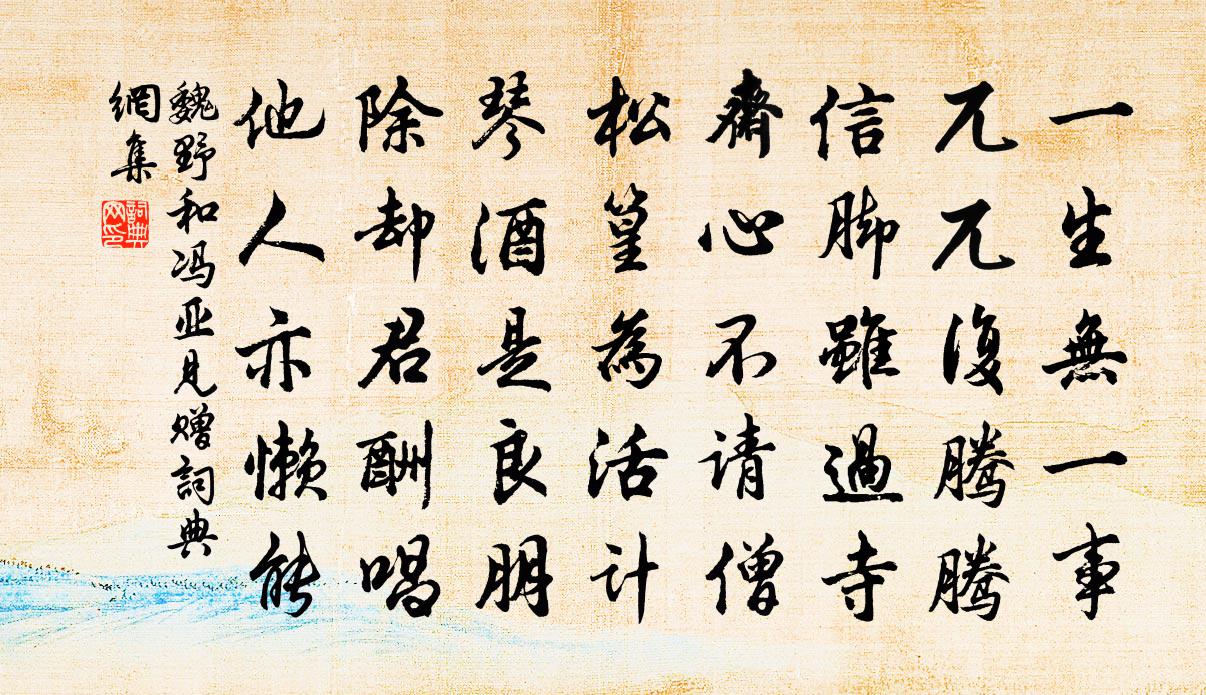 一生無一事
兀兀復騰騰
信脚雖過寺
齋心不请僧
松篁為活计
琴酒是良朋
除却君酬唱
他人亦懒能
魏野和冯亚见赠詞典
網集
詞典
网印